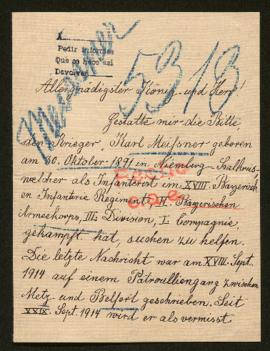 A
Pedir informes
Que se hace así
Devolver
5318
Meissner
Allergnädigster König und Herr!
Gestatte mir die Bitte
den Krieger, Karl Meißner geboren
am 30. Oktober 1891 in Nienburg Saalkreis
welcher als Infanterist im XVIII. Bayerisch
en Infanterie Regiment, II. Bayerischen
Armeekorps, III. Division, I. Compagnie
gekämpft hat, suchen zu helfen.
Die letzte Nachricht war am XVIII. Sept.
1914 auf einem Patrouillengang zwischen
Metz und Belfort geschrieben. Seit
XXIX Sept. 1914 wird er als vermisst